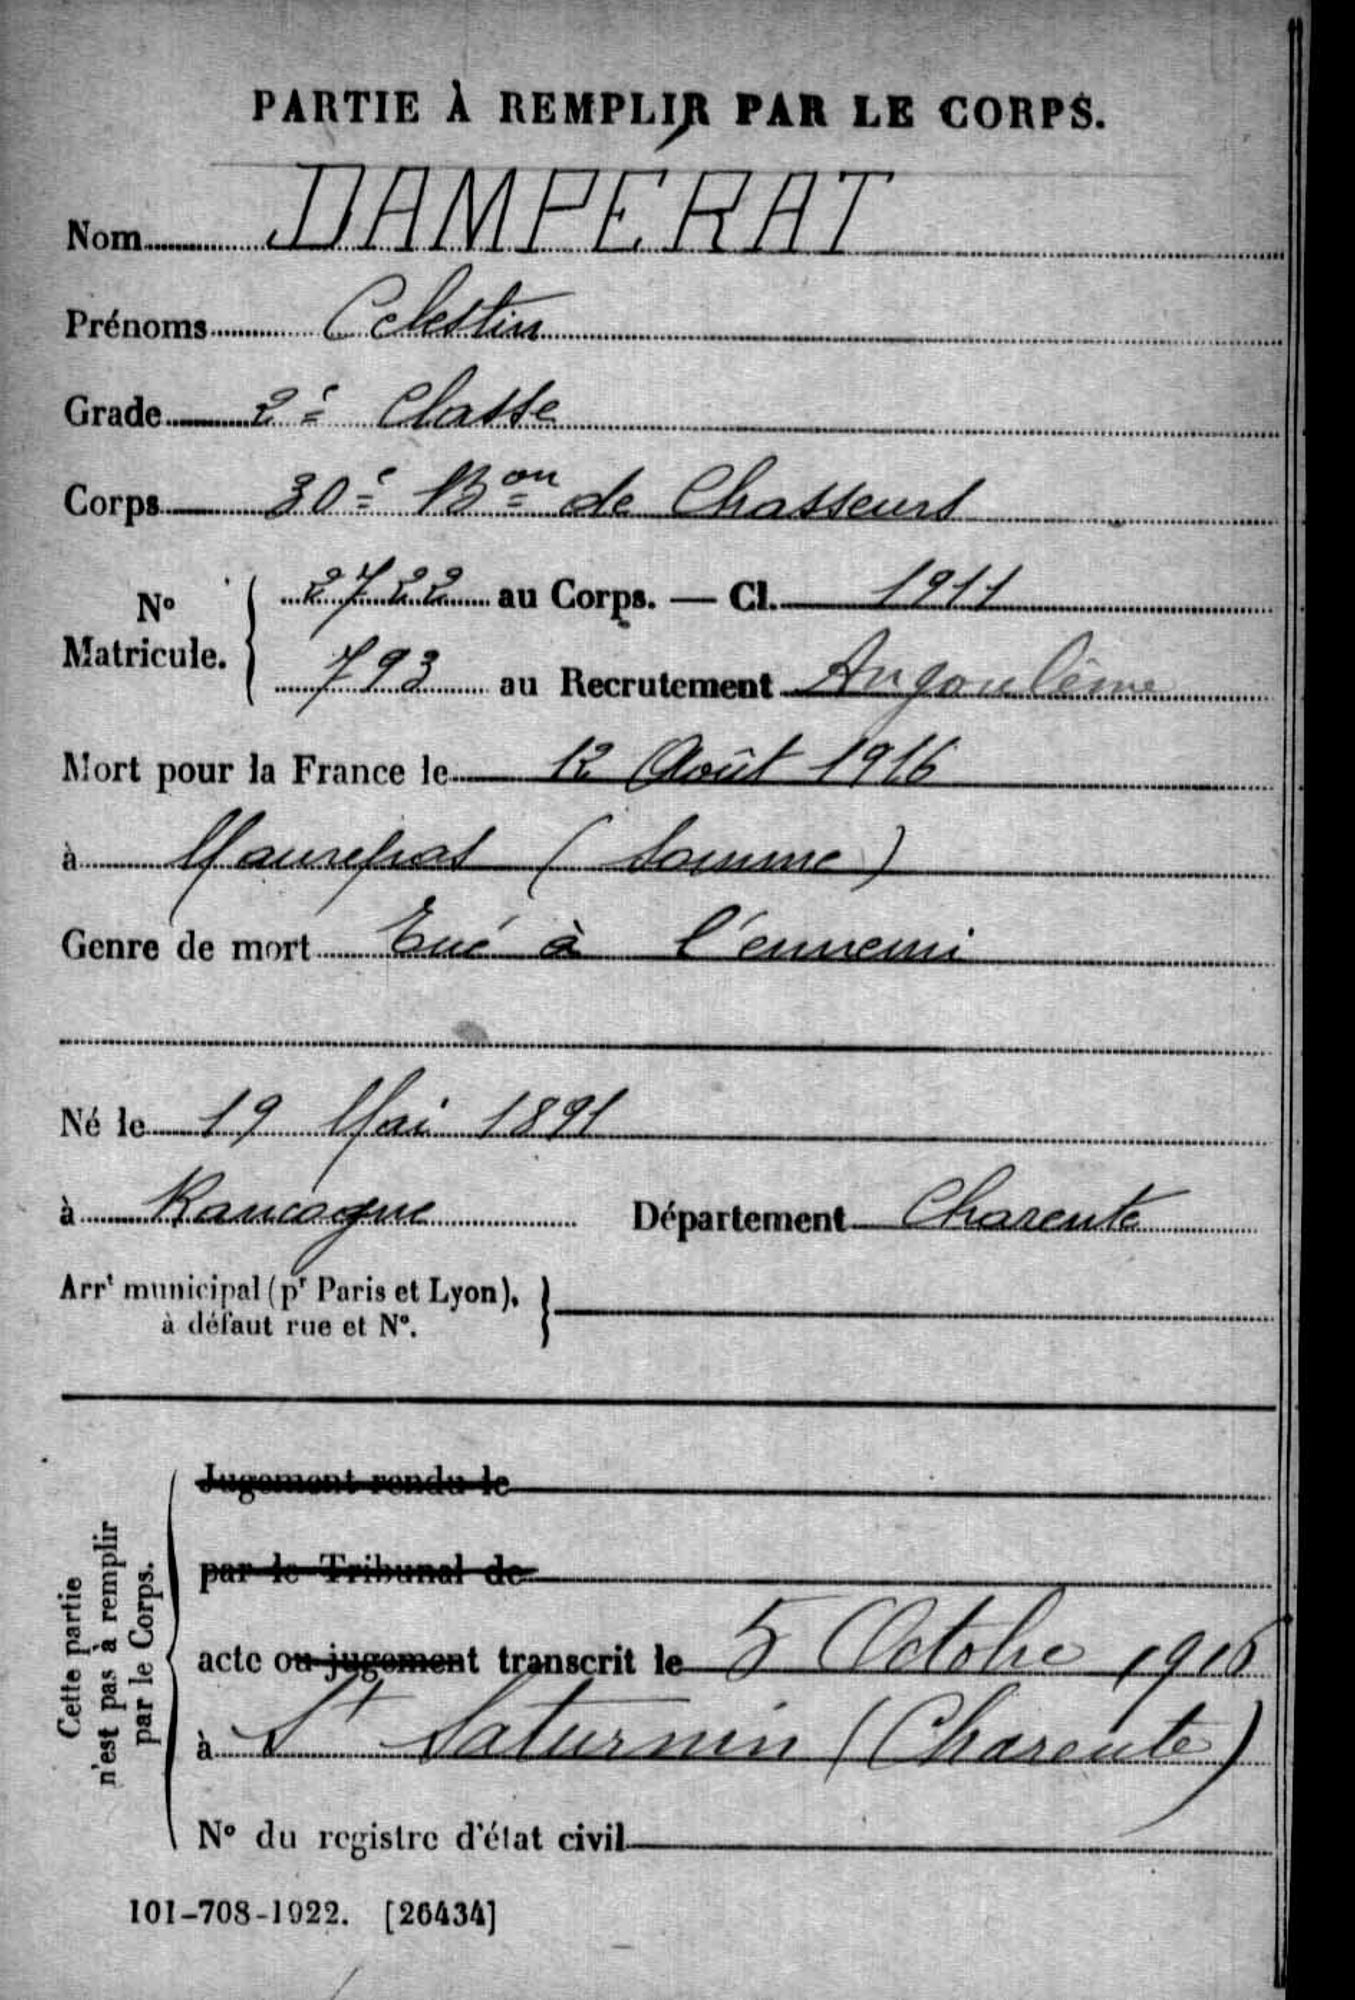 PARTIE À REMPLIR PAR LE CORPS.
Nom DAMPÉRAT
Prénoms Celestin
Grade 2e Classe
Corps 30e Bon de Chasseurs
No Matricule. 2722 au Corps. — Cl. 1911
793 au Recrutement Angoulême
Mort pour la France le 12 Août 1916
à Maurepas (Somme)
Genre de mort Tué à l'ennemi
Né le 19 Mai 1891
à Rancogne Département Charente
Arrt municipal (pr Paris et Lyon),
à défaut rue et No.
Cette partie
n'est pas à remplir
par le Corps.
Jugement rendu le
par le Tribunal de
acte ou jugement transcrit le 5 Octobre 1916
à St Saturnin (Charente)
No du registre d'état civil
101-708-1922. [26434]